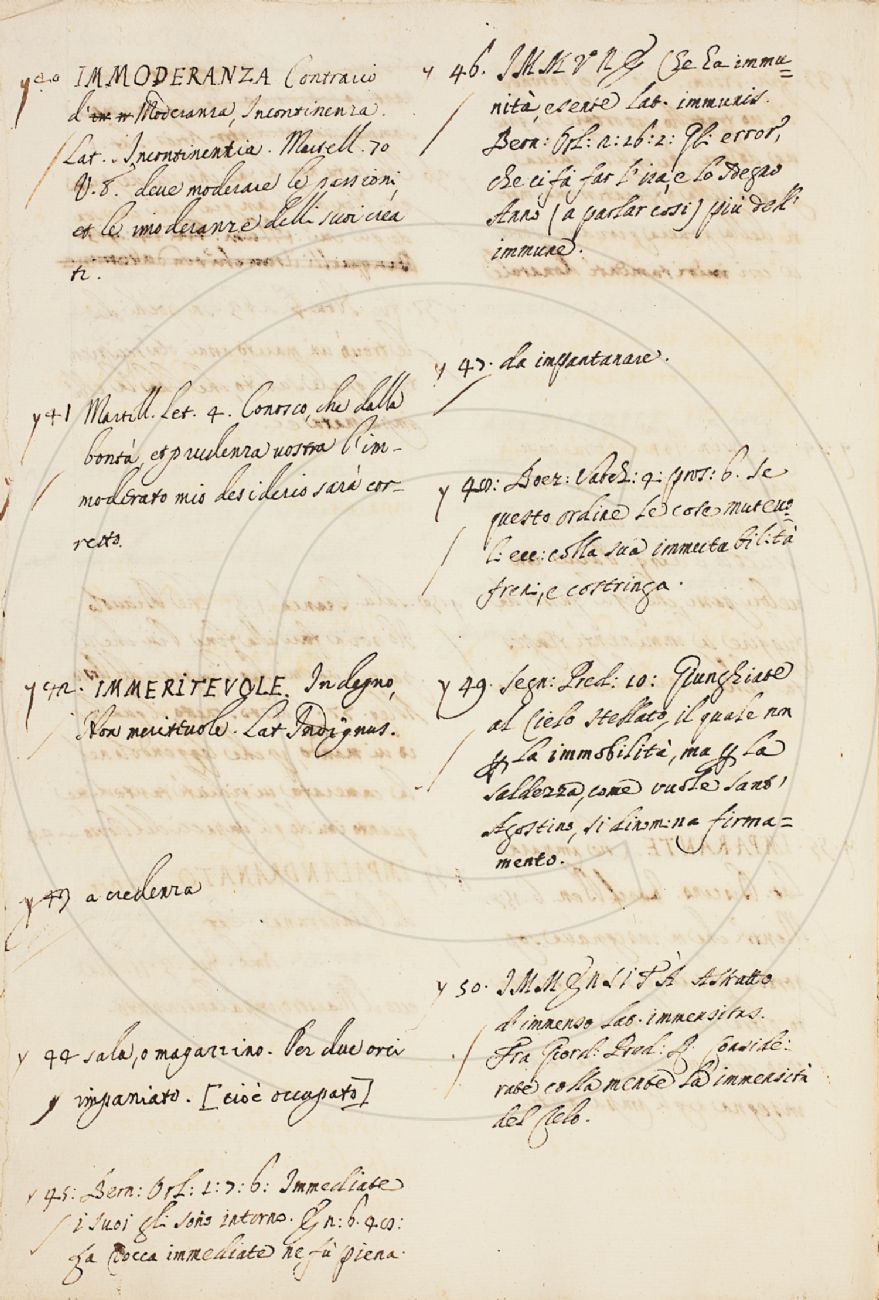 40 IMMODERANZA Contrario
d'in n Moderanza, Incontinenza.
Lat. Incontinentia. Martell. 70
V. 8. deve moderare le passioni,
et le imoderanze delli suoi crea
ti.
41 Martell. Let. 4. Conosco, che dalla
bontà, et prudenza vostra l'im-
moderato mio desiderio sarà cor-
retto.
42. IMMERITEVOLE. Indegno,
Non meritevole. Lat Indignus.
43 a credenza
44 sala, o magazzino. Per due orci
impaniato. [cioè occupato]
45: Bern: Orl: 1: 7: 6: Immediate
i suoi gli sono intorno. 6. 48:
La Rocca immediate ne fù piena.
46. IMMUNE Che ha immu=
nità, esente Lat. immunis.
Bern: Orl: 2: 26: 2: Gli error,
che ci fà far l'ira, e lo sdegno
Anno (a parlar cosi) più dell'
immune.
47. da impantanare.
48: Boez: Varch: 4: pros: 6. Se
questo ordine le cose mutevo
li ecc: colla sua immutabilità
freni, e costringa.
49. Segn: Pred: 10: Giunghiate
al Cielo stellato, il quale non
p la immobilità, ma p la
saldezza, come vuole Sant'
Agostino, si dinomina firma=
mento.
50. IMMENSITÀ Astratto
d'immenso Lat. immensitas.
Fra Giord: Pred: R: Conside:
rate colla mente la immensità
del Cielo.